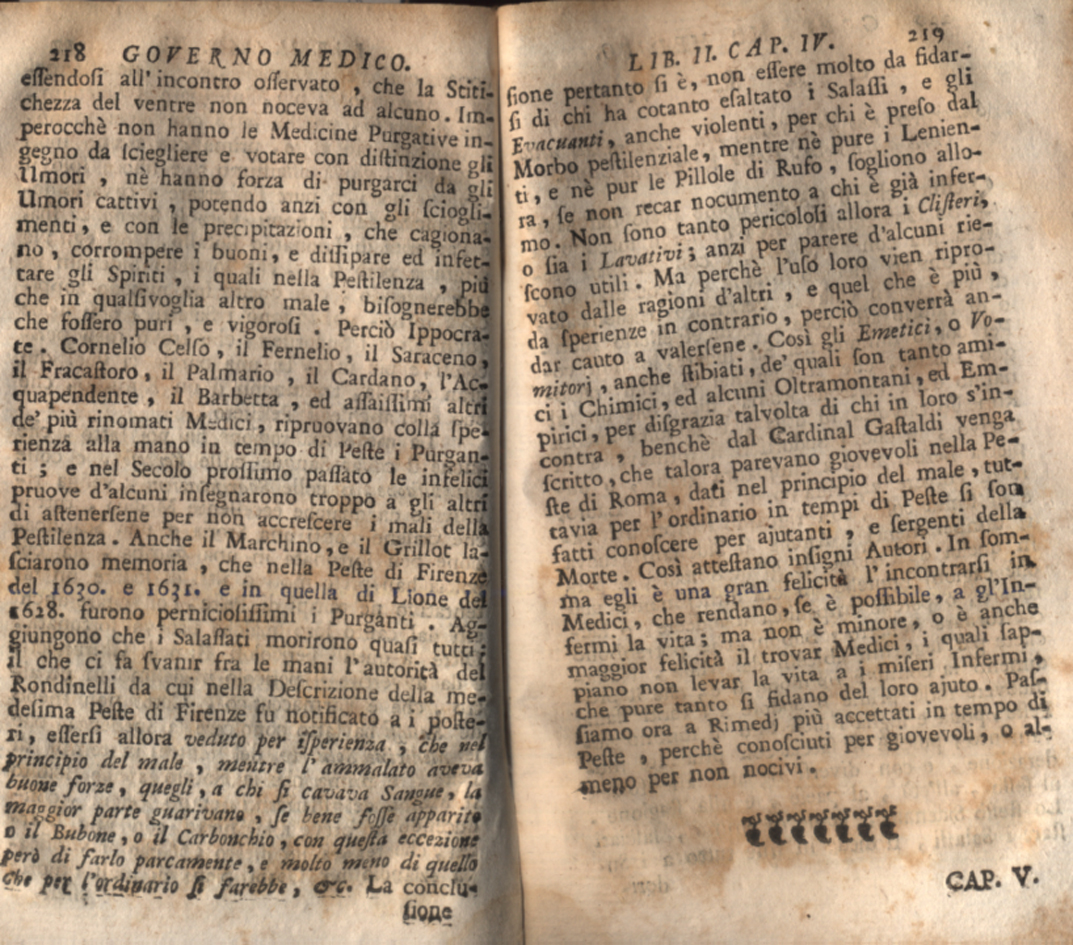 218 GOVERNO MEDICO.
eſſendoſi all'incontro oſſervato, che la Stiti-
chezza del ventre non noceva ad alcuno. Im-
perocchè non hanno le Medicine Purgative in-
gegno da ſciegliere e votare con diſtinzione gli
Umori, nè hanno forza di purgarci da gli
Umori cattivi, potendo anzi con gli ſciogli-
menti, e con le precipitazioni, che cagiona-
no, corrompere i buoni, e diſſipare ed infet-
tare gli Spiriti, i quali nella Peſtilenza, più
che in qualſivoglia altro male, biſognerebbe
che foſſero puri, e vigoroſi. Perciò Ippocra-
te. Cornelio Celſo, il Fernelio, il Saraceno,
il Fracaſtoro, il Palmario, il Cardano, l'Ac-
quapendente, il Barbetta, ed aſſaiſſimi altri
de' più rinomati Medici, ripruovano colla ſpe-
rienza alla mano in tempo di Peſte i Purgan-
ti; e nel Secolo proſſimo paſſato le infelici
pruove d'alcuni inſegnarono troppo a gli altri
di aſtenerſene per non accreſcere i mali della
Peſtilenza. Anche il Marchino, e il Grillot la-
ſciarono memoria, che nella Peſte di Firenze
del 1630. e 1631. e in quella di Lione del
1628. furono pernicioſiſſimi i Purganti. Ag-
giungono che i Salaſſati morirono quaſi tutti;
il che ci fa ſvanir fra le mani l'autorità del
Rondinelli da cui nella Deſcrizione della me-
deſima Peſte di Firenze fu notificato a i poſte-
ri, eſſerſi allora veduto per iſperienza, che nel
principio del male, mentre l'ammalato aveva
buone forze, quegli, a chi ſi cavava Sangue, la
maggior parte guarivano, ſe bene foſſe apparito
o il Bubone, o il Carbonchio, con queſta eccezione
però di farlo parcamente, e molto meno di quello
che per l'ordinario ſi farebbe, &c. La concluſ-
ſione
LIB. II. CAP. IV. 219
ſione pertanto ſi è, non eſſere molto da fidar-
ſi di chi ha cotanto eſaltato i Salaſſi, e gli
Evacuanti, anche violenti, per chi è preſo dal
Morbo peſtilenziale, mentre nè pure i Lenien-
ti, e nè pur le Pillole di Rufo, ſogliono allo-
ra, ſe non recar nocumento a chi è già infer-
mo. Non ſono tanto pericoloſi allora i Cliſteri,
o ſia i Lavativi; anzi per parere d'alcuni rie-
ſcono utili. Ma perchè l'uſo loro vien ripro-
vato dalle ragioni d'altri, e quel che è più,
da ſperienze in contrario, perciò converrà an-
dar cauto a valerſene. Così gli Emetici, o Vo-
mitorj, anche ſtibiati, de' quali ſon tanto ami-
ci i Chimici, ed alcuni Oltramontani, ed Em-
pirici, per diſgrazia talvolta di chi in loro s'in-
contra, benchè dal Cardinal Gaſtaldi venga
ſcritto, che talora parevano giovevoli nella Pe-
ſte di Roma, dati nel principio del male, tut-
tavia per l'ordinario in tempi di Peſte ſi ſon
fatti conoſcere per ajutanti, e ſergenti della
Morte. Così atteſtano inſigni Autori. In ſom-
ma egli è una gran felicità l'incontrarſi in
Medici, che rendano, ſe è poſſibile, a gl'In-
fermi la vita; ma non è minore, o è anche
maggior felicità il trovar Medici, i quali ſap-
piano non levar la vita a i miſeri Infermi,
che pure tanto ſi fidano del loro ajuto. Paſ-
ſiamo ora a Rimedj più accettati in tempo di
Peſte, perchè conoſciuti per giovevoli, o al-
meno per non nocivi.
CAP. V.